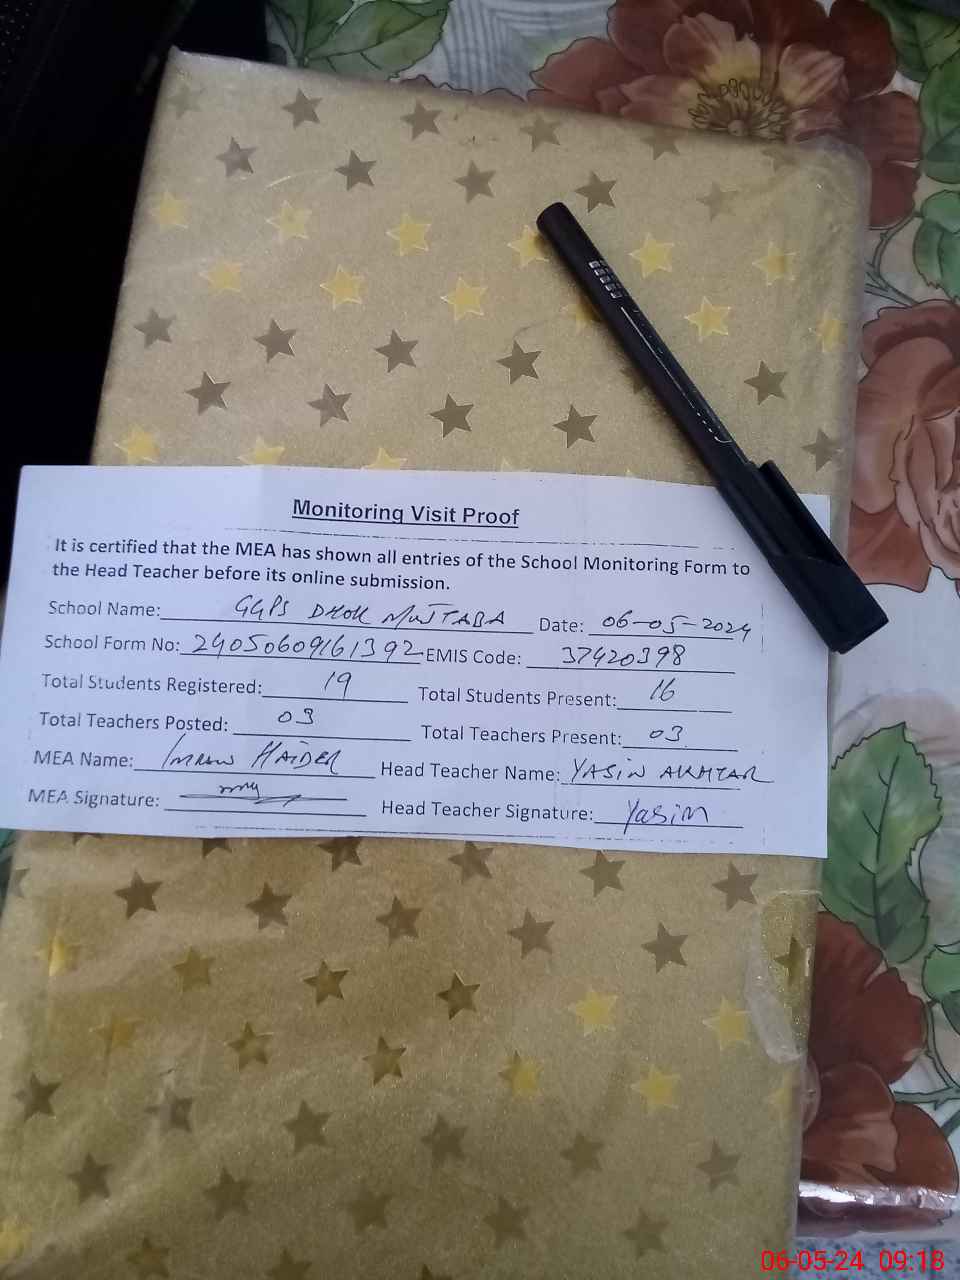 Monitoring Visit Proof
It is certified that the MEA has shown all entries of the School Monitoring Form to
the Head Teacher before its online submission.
School Name: GGPS DHOK MUJTABA Date: 06-05-2024
School Form No: 24050609161392 EMIS Code: 37420398
Total Students Registered: 19 Total Students Present: 16
Total Teachers Posted: 03 Total Teachers Present: 03
MEA Name: Imran HAIDER Head Teacher Name: YASIN AKHTAR
MEA Signature: Head Teacher Signature: Yasim
06-05-24 09:18